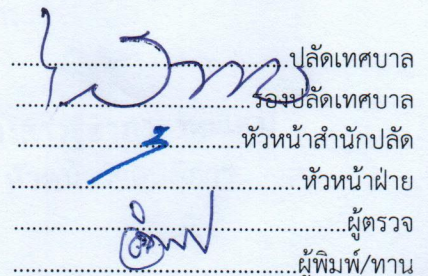 ....................ปลัดเทศบาล
....................รองปลัดเทศบาล
....................หัวหน้าสำนักปลัด
....................หัวหน้าฝ่าย
....................ผู้ตรวจ
....................ผู้พิมพ์/ทาน